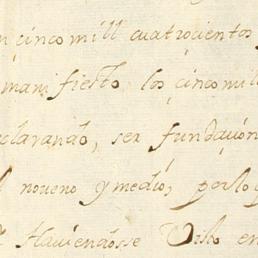 n cinco mill cuatrocientos
manifiesto los cinco mil
clarando, ser fundaçion
noveno y medio, por lo q
Haviendosse Visto en